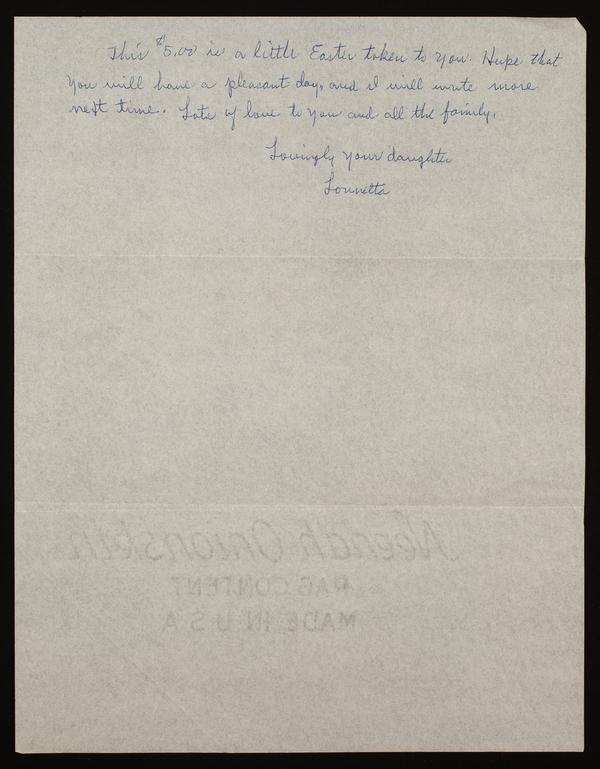 This $5.00 is a little Easter token to you. Hope that
you will have a pleasant day, and I will write more
next time. Lots of love to you and all the family.
Lovingly your daughter
Lounetta
Neenah Onionskin
RAG CONTENT
MADE IN U S A